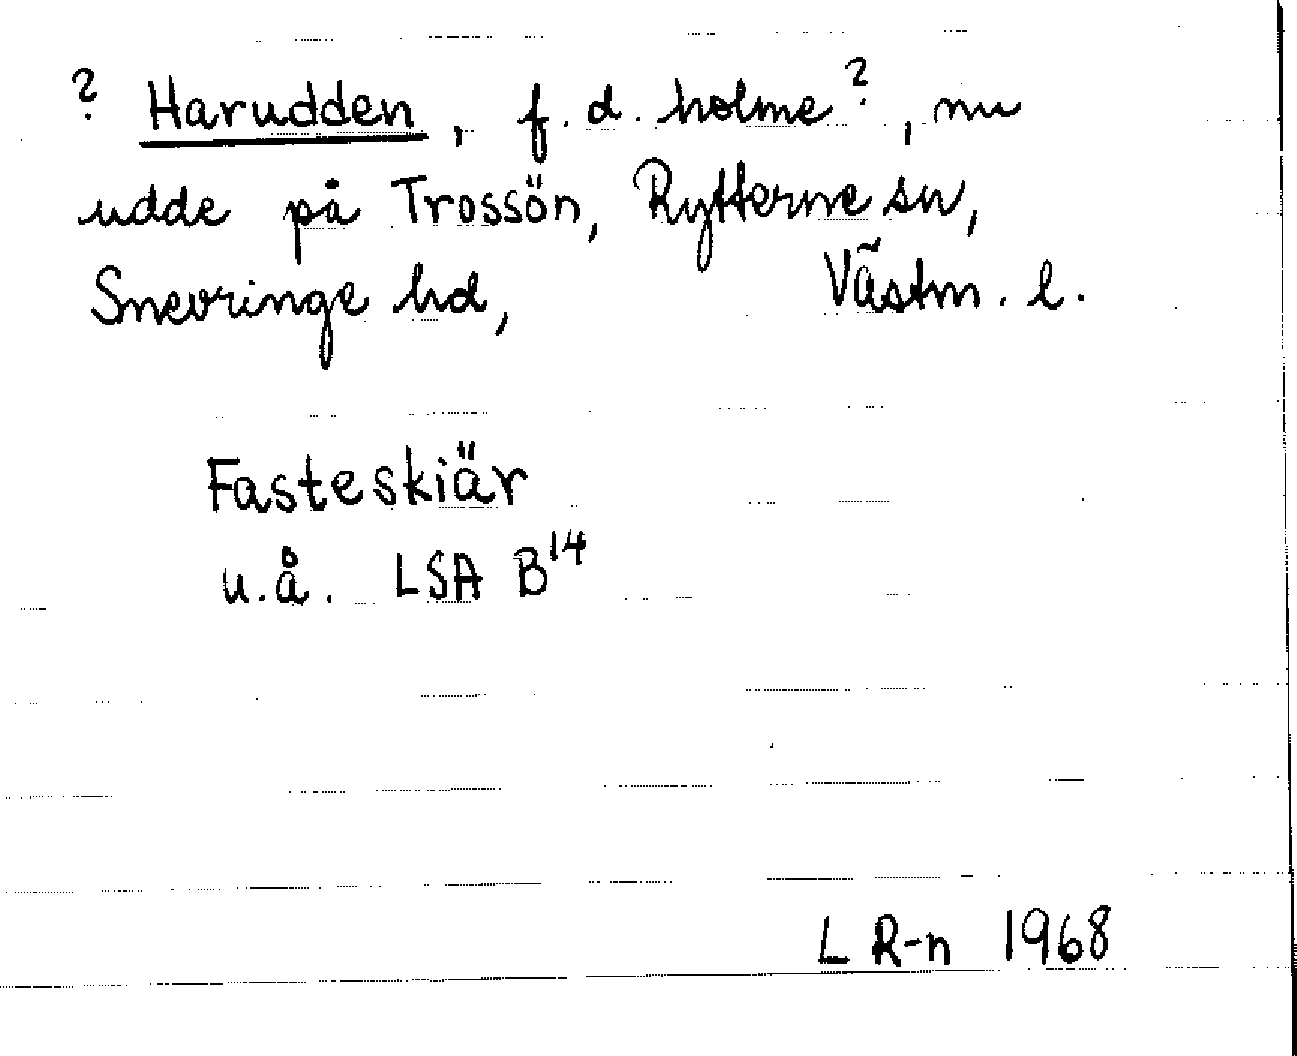 ? Harudden, f.d. holme?, nu
udde på Trossön, Rytterne sn,
Snevringe hd, Västm. l.
Fasteskiär
u.å. LSA B14
L R-n 1968